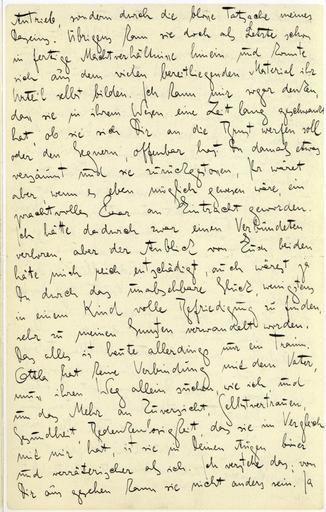 Antrieb, sondern durch die bloße Tatsache meines
Daseins. Übrigens kam sie doch als Letzte schon
in fertige Machtverhältnisse hinein und konnte
sich aus dem vielen bereitliegenden Material ihr
Urteil selbst bilden. Ich kann mir sogar denken,
dass sie in ihrem Wesen eine Zeit lang geschwankt
hat, ob sie sich Dir an die Brust werfen soll
oder den Gegnern, offenbar hast Du damals etwas
versäumt und sie zurückgestossen, Ihr wäret
aber wenn es eben möglich gewesen wäre, ein
prachtvolles Paar an Eintracht geworden.
Ich hätte dadurch zwar einen Verbündeten
verloren, aber der Anblick von Euch beiden
hätte mich reich entschädigt, auch wärest ja
Du durch das unabsehbare Glück, wenigstens
in einem Kind volle Befriedigung zu finden,
sehr zu meinen Gunsten verwandelt worden.
Das alles ist heute allerdings nur ein Traum.
Ottla hat keine Verbindung mit dem Vater,
muss ihren Weg allein suchen, wie ich und
um das Mehr an Zuversicht, Selbstvertrauen,
Gesundheit, Bedenkenlosigkeit, das sie im Vergleich
mit mir hat, ist sie in Deinen Augen böser
und verräterischer als ich. Ich verstehe das; von
Dir aus gesehen kann sie nicht anders sein. Ja